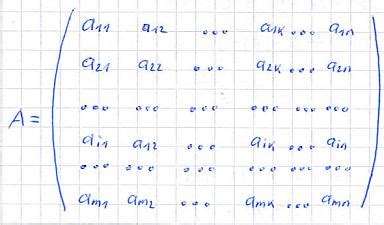 a11 a12 ... a1k ... a1n
a21 a22 ... a2k ... a2n
... ... ... ... ... ...
A = ai1 a12 ... aik ... ain
... ... ... ... ... ...
am1 am2 ... amk ... amn